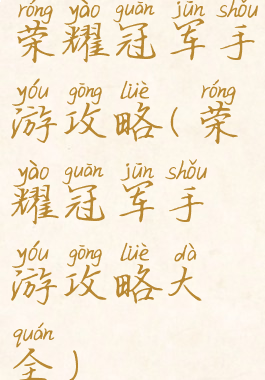 róng yào guān jūn shǒu
荣耀冠军手
yóu gōng lüè róng
游攻略(荣
yào guān jūn shǒu
耀冠军手
yóu gōng lüè dà
游攻略大
quán
全)